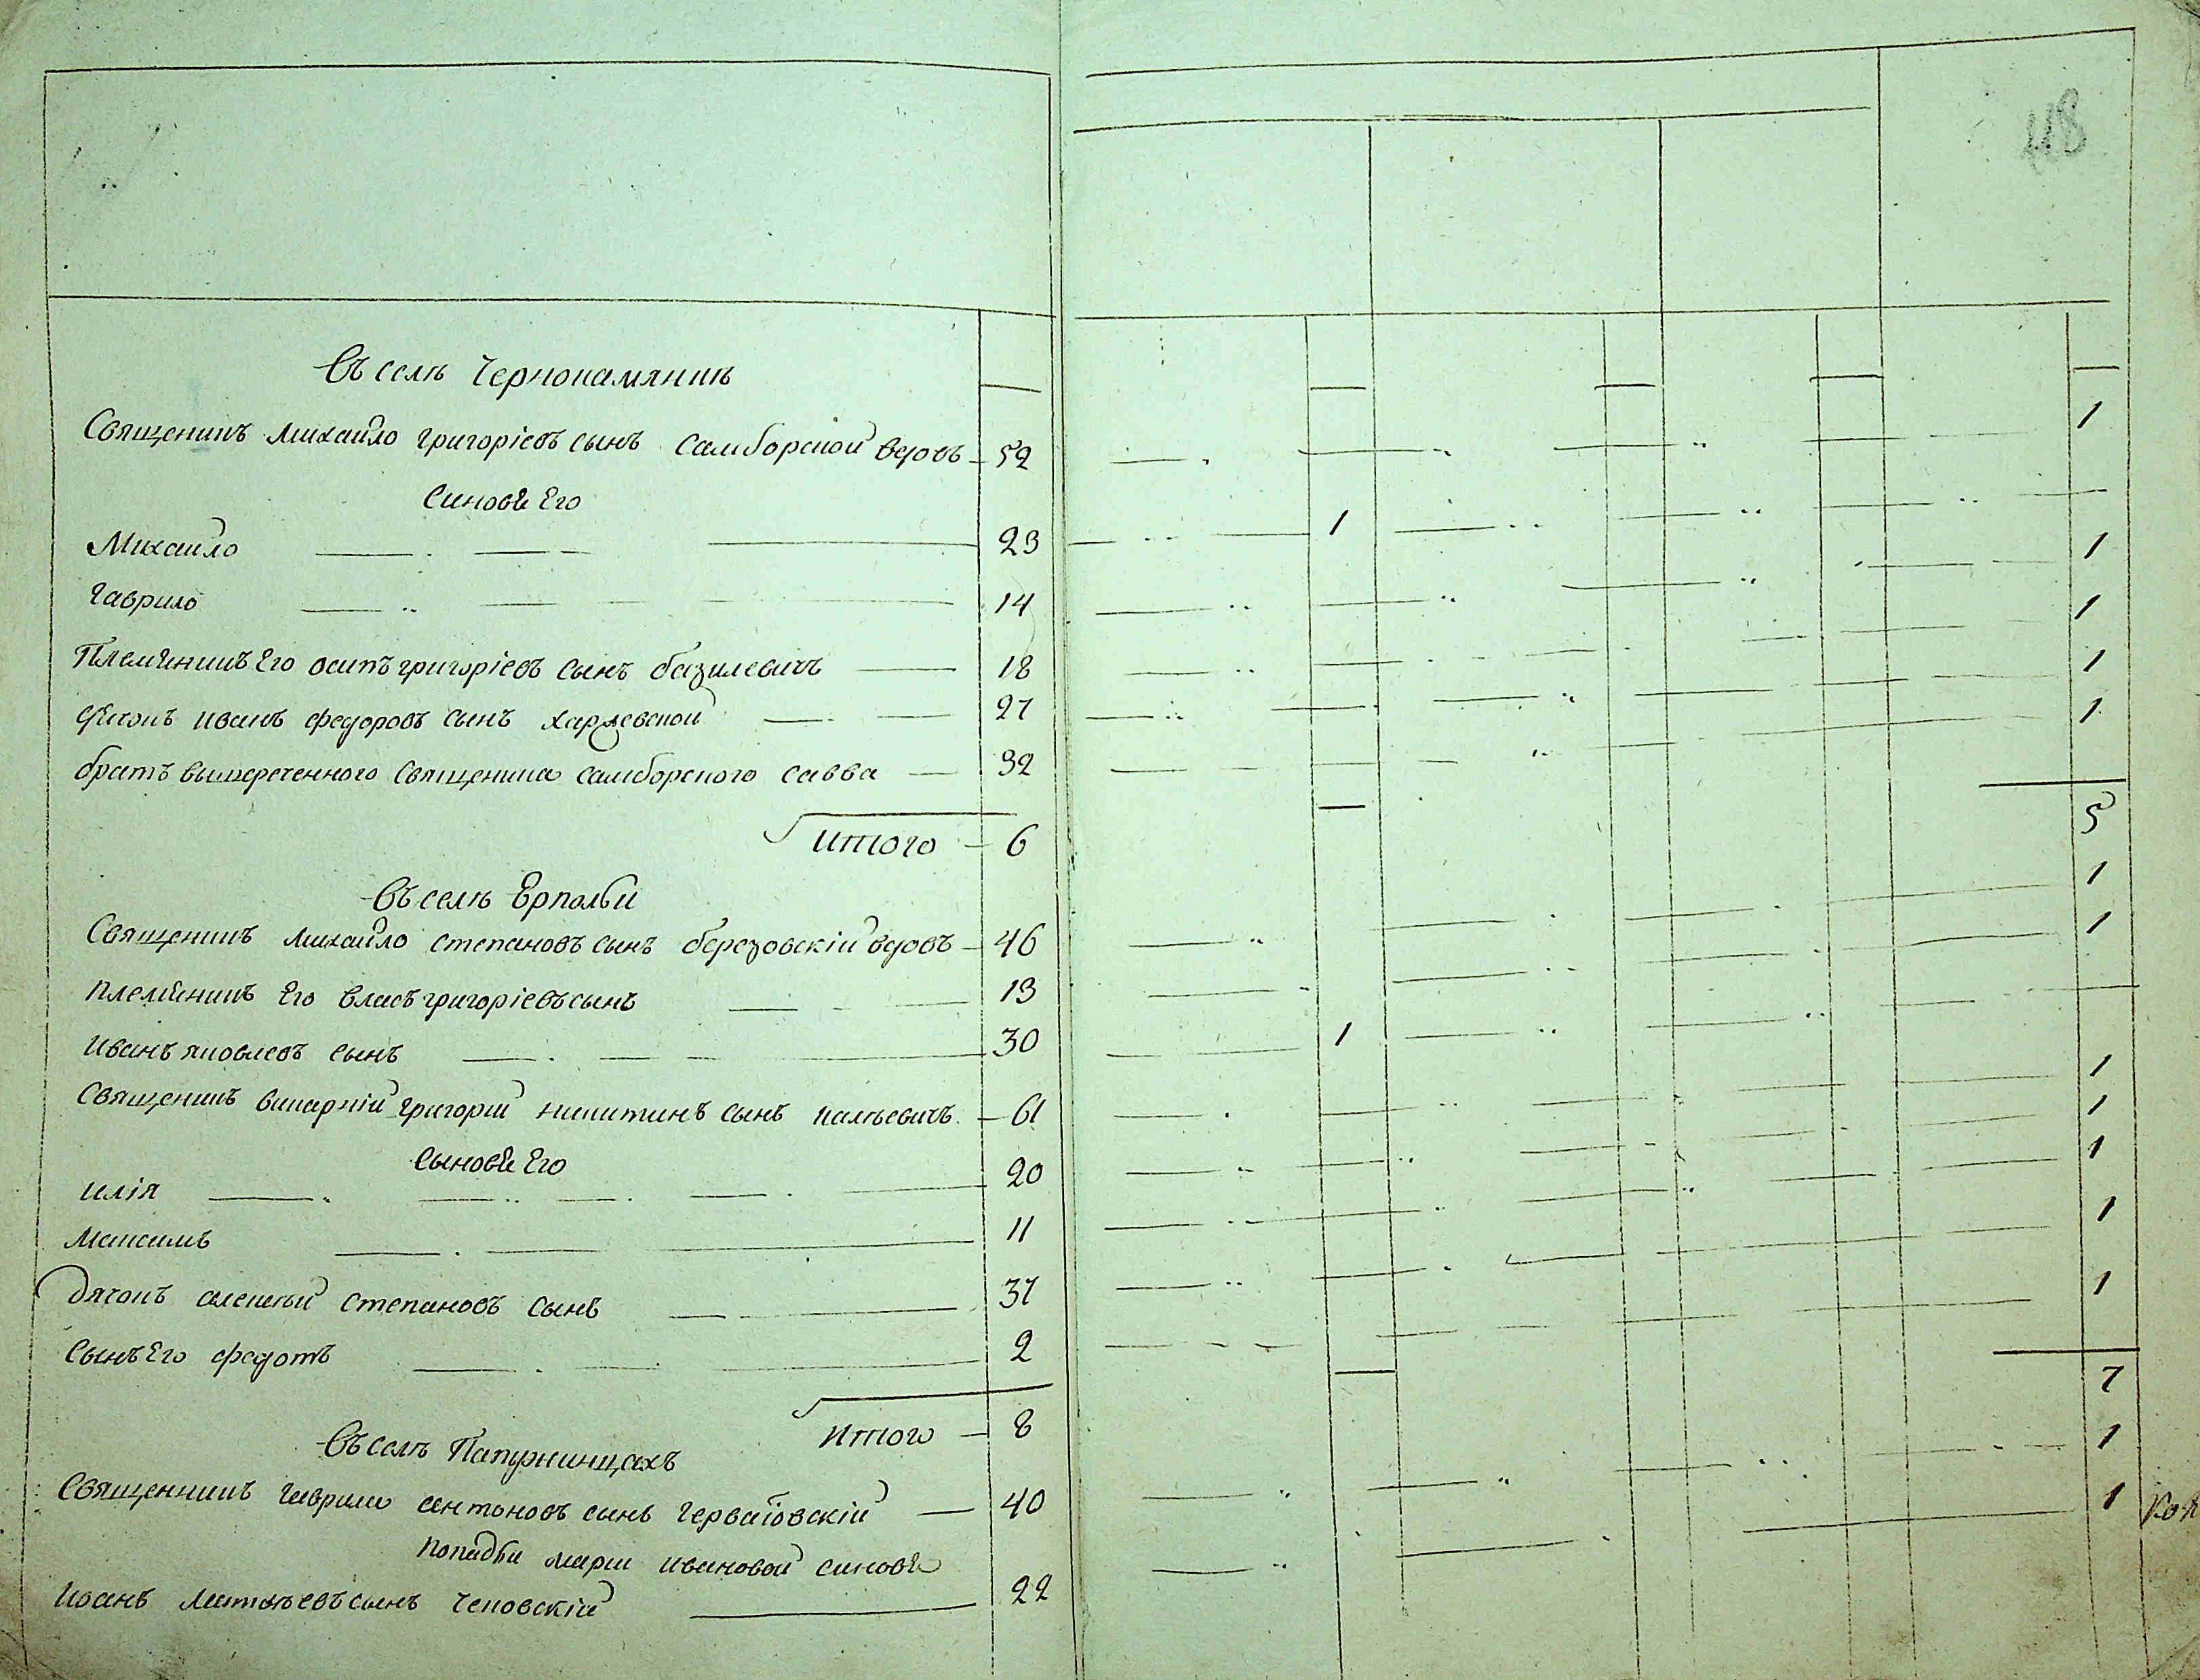 118
Въ селѣ Чернокамянкѣ
Священикъ Михайло григоріевъ сынъ Самборской вдовъ 52 1
Синовѣ Его
Михайло 23 1
Гаврило 14 1
Племѣникъ Его осипъ григоріевъ сынъ базилевичъ 18 1
дячокъ иванъ федоровъ сынъ харлевской 27 1
братъ вышереченного Священика самборского савва 32 1
итого 6 5
Въ селѣ Ерполѣи
Священикъ михайло степановъ сынъ березовскій вдовъ 46 1
племѣникъ Его власъ григоріевъ сынъ 13 1
иванъ яковлевъ сынъ 30 1
Священикъ викарній григорій никитинъ сынъ 61 1
Сыновѣ Его
илія 20 1
максимъ 11 1
дячокъ алексѣй степановъ сынъ 37 1
Сынъ Его федотъ 2 1
итого 8 7
Въ селѣ Папужинцахъ
Священникъ гаврило антоновъ сынъ 40 1
попадьи марии ивановой синовѣ
иванъ матѳѣевъ сынъ чеповскій 22 1